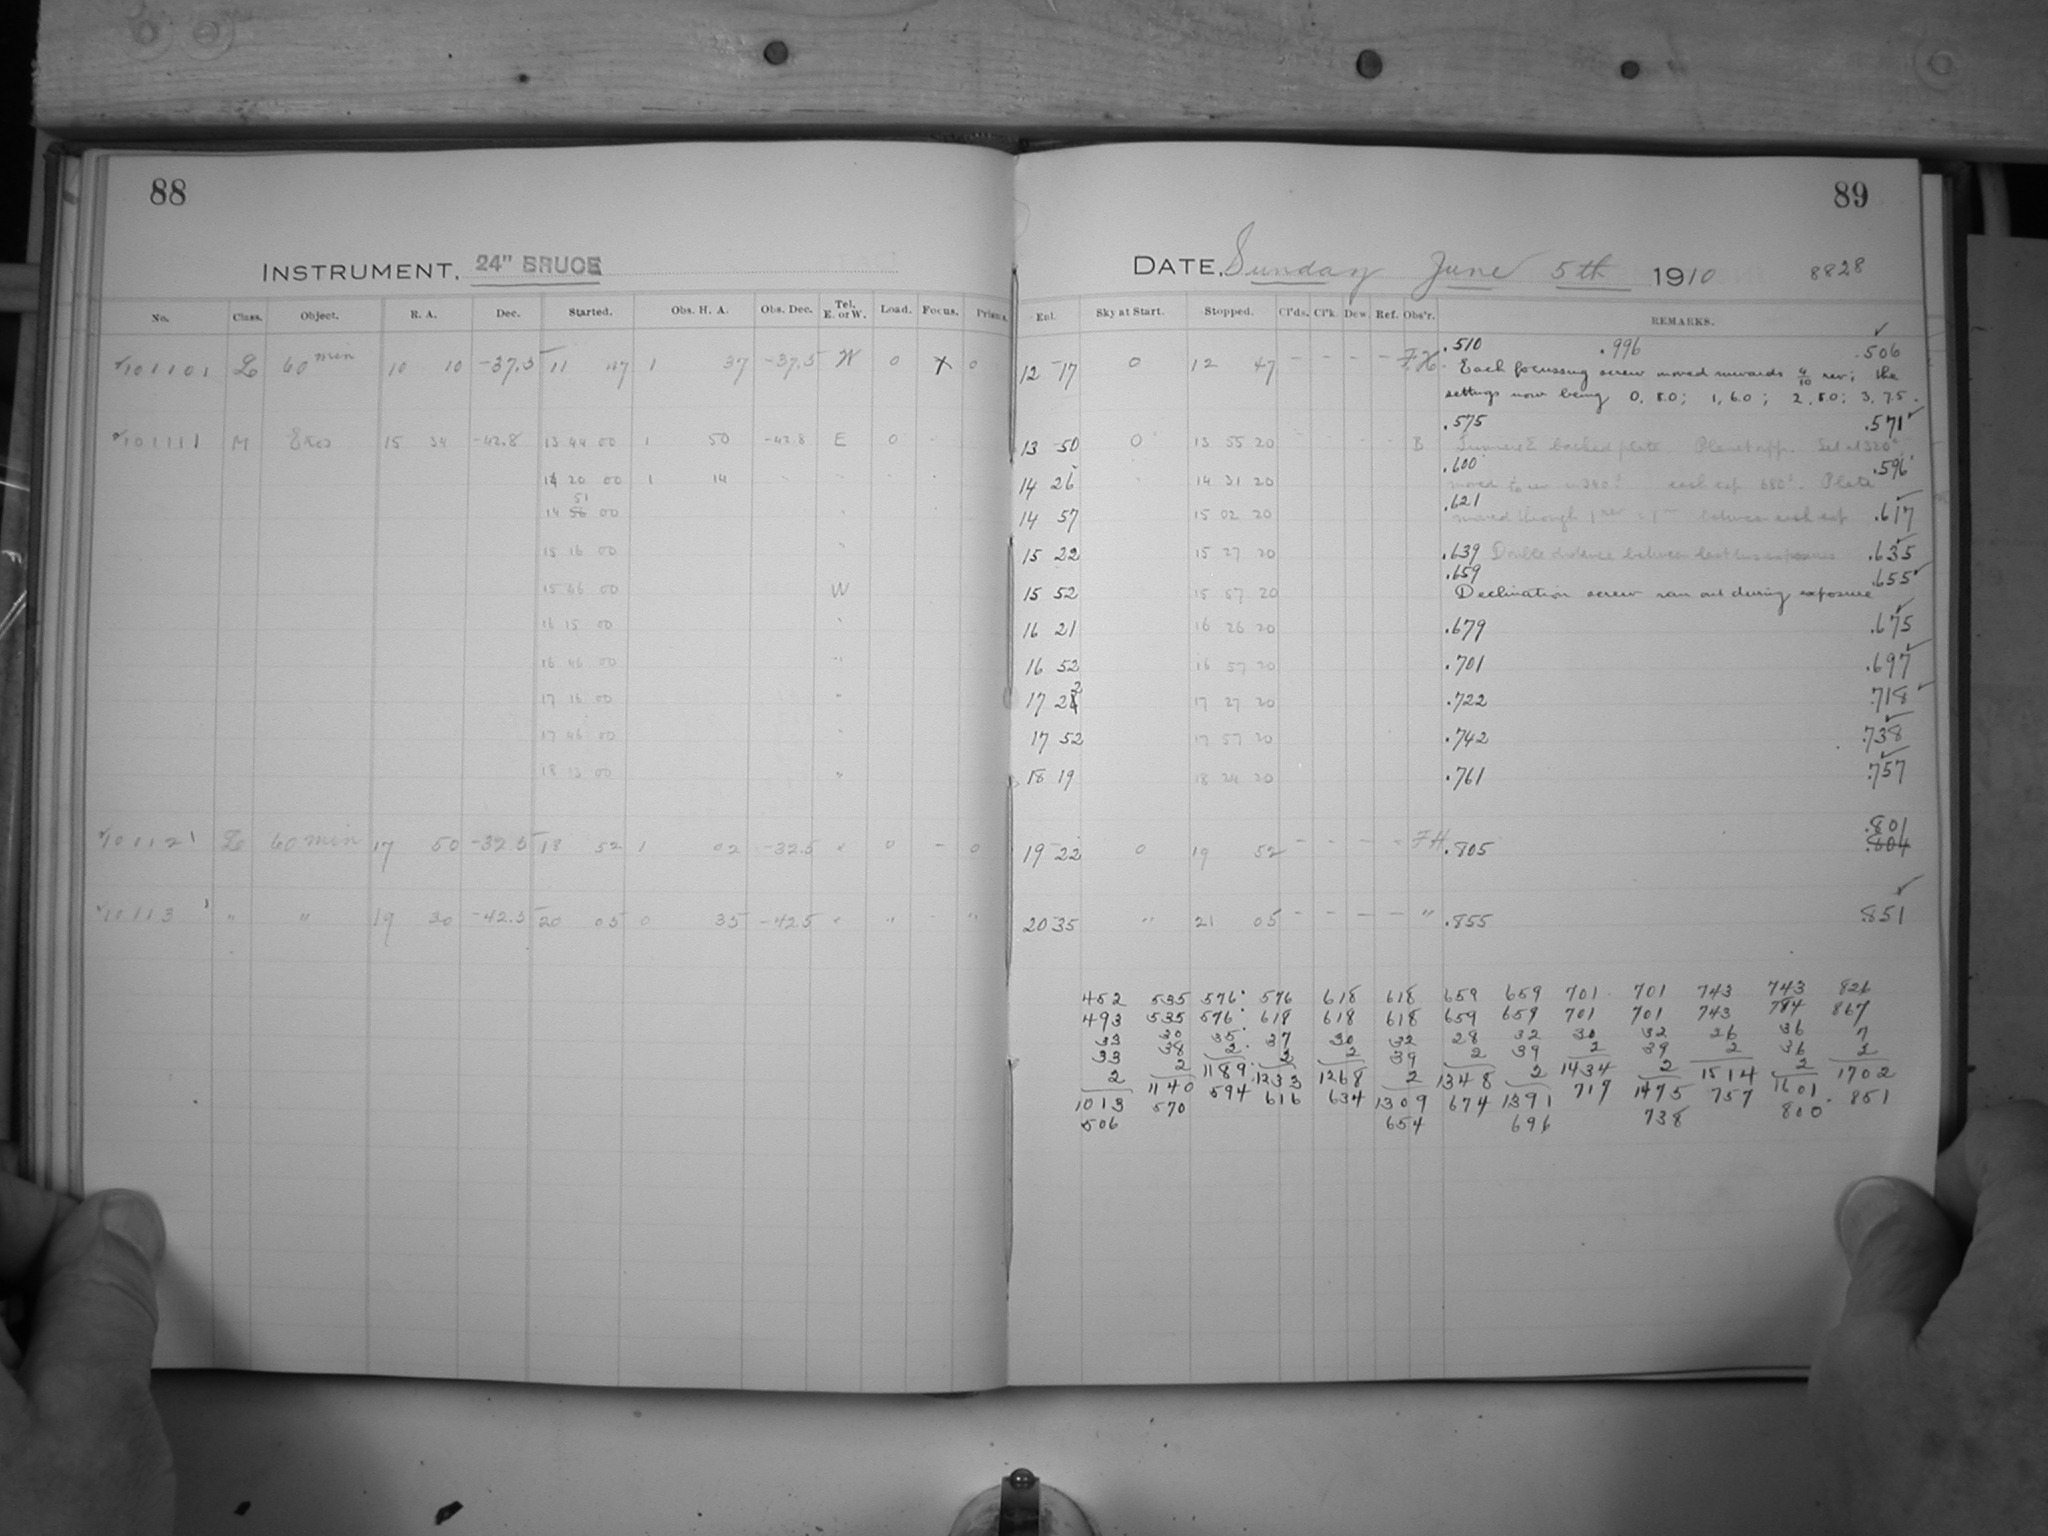 88
INSTRUMENT, 24" BRUCE
No. Class. Object. R. A. Dec. Started. Obs. H. A. Obs. Dec. Tel. E. or W. Load. Focus. Prisms.
10110 60 min 10 10 -37.5 11 47 1 37 -37.5 W 0 X 0
10111 M Eros 15 34 -42.8 13 44 00 1 50 -42.8 E 0
14 20 00 1 14
51
14 56 00
15 16 00
15 46 00 W
16 15 00 "
16 46 00 "
17 16 00 "
17 46 00 "
18 13 00 "
10112 60 min 17 50 -32.5 18 52 1 02 -32.5 " 0 - 0
10113 " " 19 30 -42.5 20 05 0 35 -42.5 " " - "
89
DATE, Sunday June 5th 1910 8828
Ent. Sky at Start. Stopped. Cl'ds. Cl'k. Dew. Ref. Obs'r. REMARKS.
.510 .996 .506
12 17 0 12 47 - - - - F.H. Each focussing screw moved inwards 4/10 rev; the
settings now being 0, 5.0; 1, 6.0; 2, 5.0; 3, 7.5.
.575 .571
13 50 0 13 55 20 B backed plate. Planet app. Set at 320°
.600 .596
14 26 14 31 20 moved each exp 680". Plate
.621
14 57 15 02 20 moved through 1 between each exp .617
15 22 15 27 20 .639 Double distance between last two exposures .635
.659 .655
15 52 15 57 20 Declination screw ran out during exposure
16 21 16 26 20 .679 .675
16 52 16 57 20 .701 .697
17 22 17 27 20 .722 .718
17 52 17 57 20 .742 .738
18 19 18 24 20 .761 .757
.801
19 22 0 19 52 - - - - F.H. .805 .804
20 35 " 21 05 - - - - " .855 .851
452 535 576 576 618 618 659 659 701 701 743 743 826
493 535 576 618 618 618 659 659 701 701 743 784 867
33 30 35 37 30 32 28 32 30 32 26 36 7
33 38 2 2 2 39 2 39 2 39 2 36 2
2 2 1189 1233 1268 2 1348 2 1434 2 1514 2 1702
1013 1140 594 616 634 1309 674 1391 717 1475 757 1601 851
506 570 654 696 738 800